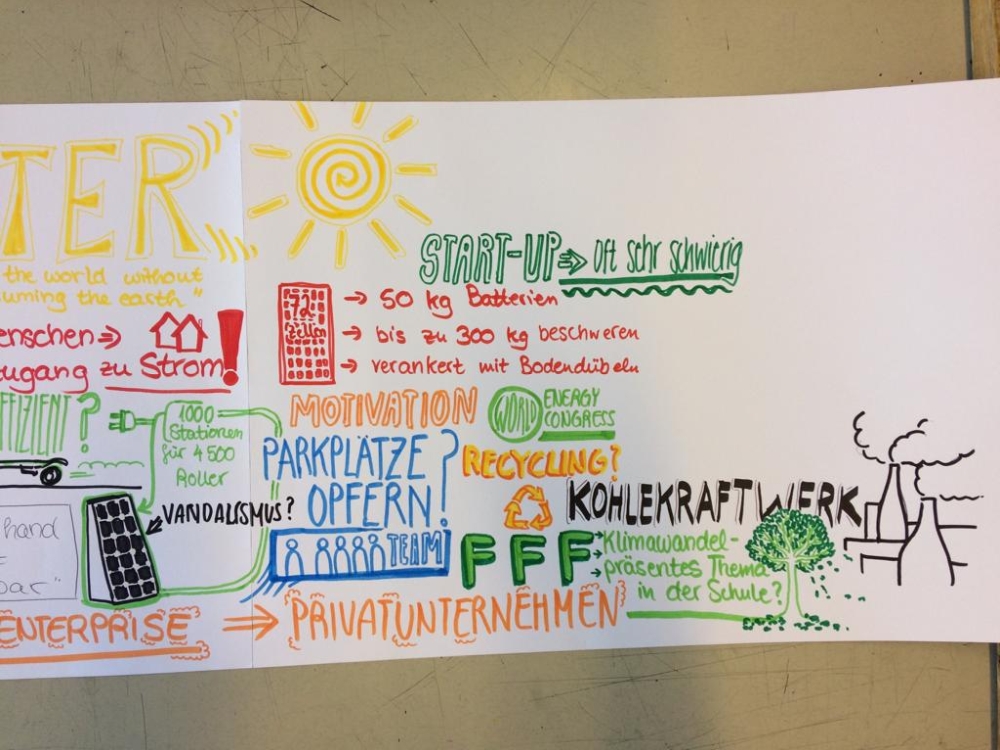 TER
the world without
uming the earth"
enschen
ugang zu Strom!
FFIZIENT?
1000
Stationen
für 4500
Roller
hand
bar"
VANDALISMUS?
ENTERPRISE
START-UP Oft sehr schwierig
72
Zellen
50 kg Batterien
bis zu 300 kg beschweren
verankert mit Bodendübeln
MOTIVATION
WORLD ENERGY
CONGRESS
PARKPLÄTZE
OPFERN?
RECYCLING?
KOHLEKRAFTWERK
TEAM
FFF
Klimawandel-
präsentes Thema
in der Schule?
PRIVATUNTERNEHMEN